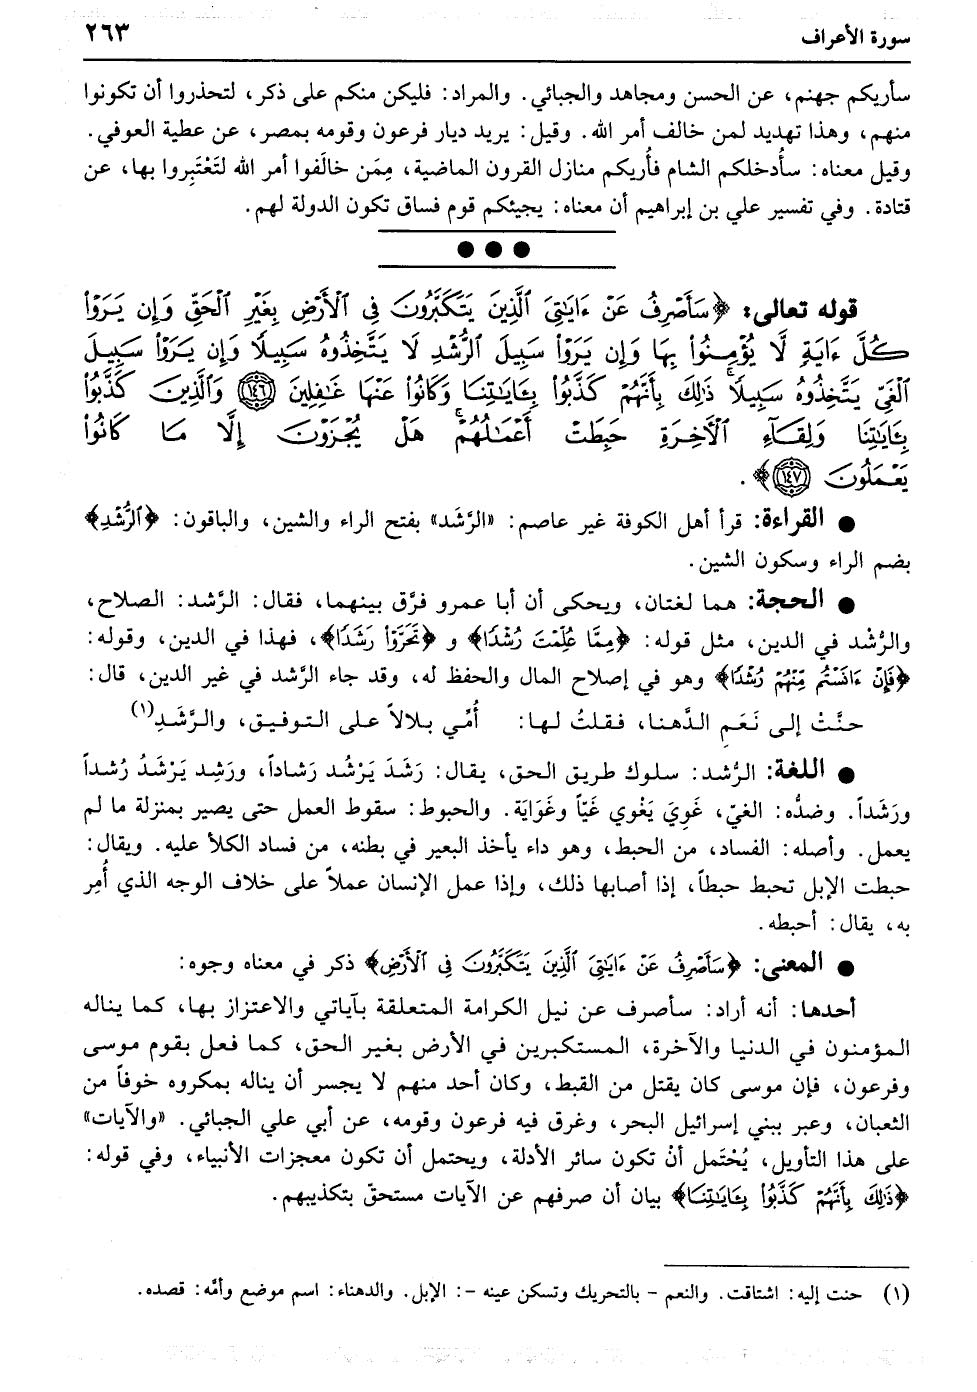 سورة الأعراف ٢٦٣
سأريكم جهنم، عن الحسن ومجاهد والجبائي. والمراد: فليكن منكم على ذكر، لتحذروا أن تكونوا
منهم، وهذا تهديد لمن خالف أمر الله. وقيل: يريد ديار فرعون وقومه بمصر، عن عطية العوفي.
وقيل معناه: سأُدخلكم الشام فأُريكم منازل القرون الماضية، مِمَن خالَفوا أمر الله لتَعْتَبِروا بها، عن
قتادة. وفي تفسير علي بن إبراهيم أن معناه: يجيئكم قوم فساق تكون الدولة لهم.
● ● ●
قوله تعالى: ﴿سَأَصْرِفُ عَنْ ءَايَٰتِيَ ٱلَّذِينَ يَتَكَبَّرُونَ فِي ٱلْأَرْضِ بِغَيْرِ ٱلْحَقِّ وَإِن يَرَوْا۟
كُلَّ ءَايَةٍ لَّا يُؤْمِنُوا۟ بِهَا وَإِن يَرَوْا۟ سَبِيلَ ٱلرُّشْدِ لَا يَتَّخِذُوهُ سَبِيلًا وَإِن يَرَوْا۟ سَبِيلَ
ٱلْغَيِّ يَتَّخِذُوهُ سَبِيلًا ۚ ذَٰلِكَ بِأَنَّهُمْ كَذَّبُوا۟ بِـَٔايَٰتِنَا وَكَانُوا۟ عَنْهَا غَٰفِلِينَ ﴿١٤٦﴾ وَٱلَّذِينَ كَذَّبُوا۟
بِـَٔايَٰتِنَا وَلِقَآءِ ٱلْأَخِرَةِ حَبِطَتْ أَعْمَٰلُهُمْ ۚ هَلْ يُجْزَوْنَ إِلَّا مَا كَانُوا۟
يَعْمَلُونَ ﴿١٤٧﴾﴾.
● القراءة: قرأ أهل الكوفة غير عاصم: «الرَّشَد» بفتح الراء والشين، والباقون: ﴿ٱلرُّشْدِ﴾
بضم الراء وسكون الشين.
● الحجة: هما لغتان، ويحكى أن أبا عمرو فرَّق بينهما، فقال: الرَّشد: الصلاح،
والرُّشْد في الدين، مثل قوله: ﴿مِمَّا عُلِّمْتَ رُشْدًا﴾ و ﴿تَحَرَّوْا۟ رَشَدًا﴾، فهذا في الدين، وقوله:
﴿فَإِنْ ءَانَسْتُم مِّنْهُمْ رُشْدًا﴾ وهو في إصلاح المال والحفظ له، وقد جاء الرَّشد في غير الدين، قال:
حنَّتْ إلى نَعَمِ الدَّهنا، فقلتُ لها: أُمِّي بلالاً على التوفيق، والرَّشَدِ(١)
● اللغة: الرُّشد: سلوك طريق الحق، يقال: رَشَدَ يَرْشُد رَشاداً، ورَشِد يَرْشَدُ رُشداً
ورَشَداً. وضدُّه: الغيّ، غَوِيَ يَغْوي غَيّاً وغَوَايَة. والحبوط: سقوط العمل حتى يصير بمنزلة ما لم
يعمل. وأصله: الفساد، من الحبط، وهو داء يأخذ البعير في بطنه، من فساد الكلأ عليه. ويقال:
حبطت الإبل تحبط حبطاً، إذا أصابها ذلك، وإذا عمل الإنسان عملاً على خلاف الوجه الذي أُمِر
به، يقال: أحبطه.
● المعنى: ﴿سَأَصْرِفُ عَنْ ءَايَٰتِيَ ٱلَّذِينَ يَتَكَبَّرُونَ فِي ٱلْأَرْضِ﴾ ذكر في معناه وجوه:
أحدها: أنه أراد: سأصرف عن نيل الكرامة المتعلقة بآياتي والاعتزاز بها، كما يناله
المؤمنون في الدنيا والآخرة، المستكبرين في الأرض بغير الحق، كما فعل بقوم موسى
وفرعون، فإن موسى كان يقتل من القبط، وكان أحد منهم لا يجسر أن يناله بمكروه خوفاً من
الثعبان، وعبر ببني إسرائيل البحر، وغرق فيه فرعون وقومه، عن أبي علي الجبائي. «والآيات»
على هذا التأويل، يُحْتَمل أنْ تكون سائر الأدلة، ويحتمل أن تكون معجزات الأنبياء، وفي قوله:
﴿ذَٰلِكَ بِأَنَّهُمْ كَذَّبُوا۟ بِـَٔايَٰتِنَا﴾ بيان أن صرفهم عن الآيات مستحقّ بتكذيبهم.
(١) حنت إليه: اشتاقت. والنعم - بالتحريك وتسكن عينه -: الإبل. والدهناء: اسم موضع وأمَّه: قصده.